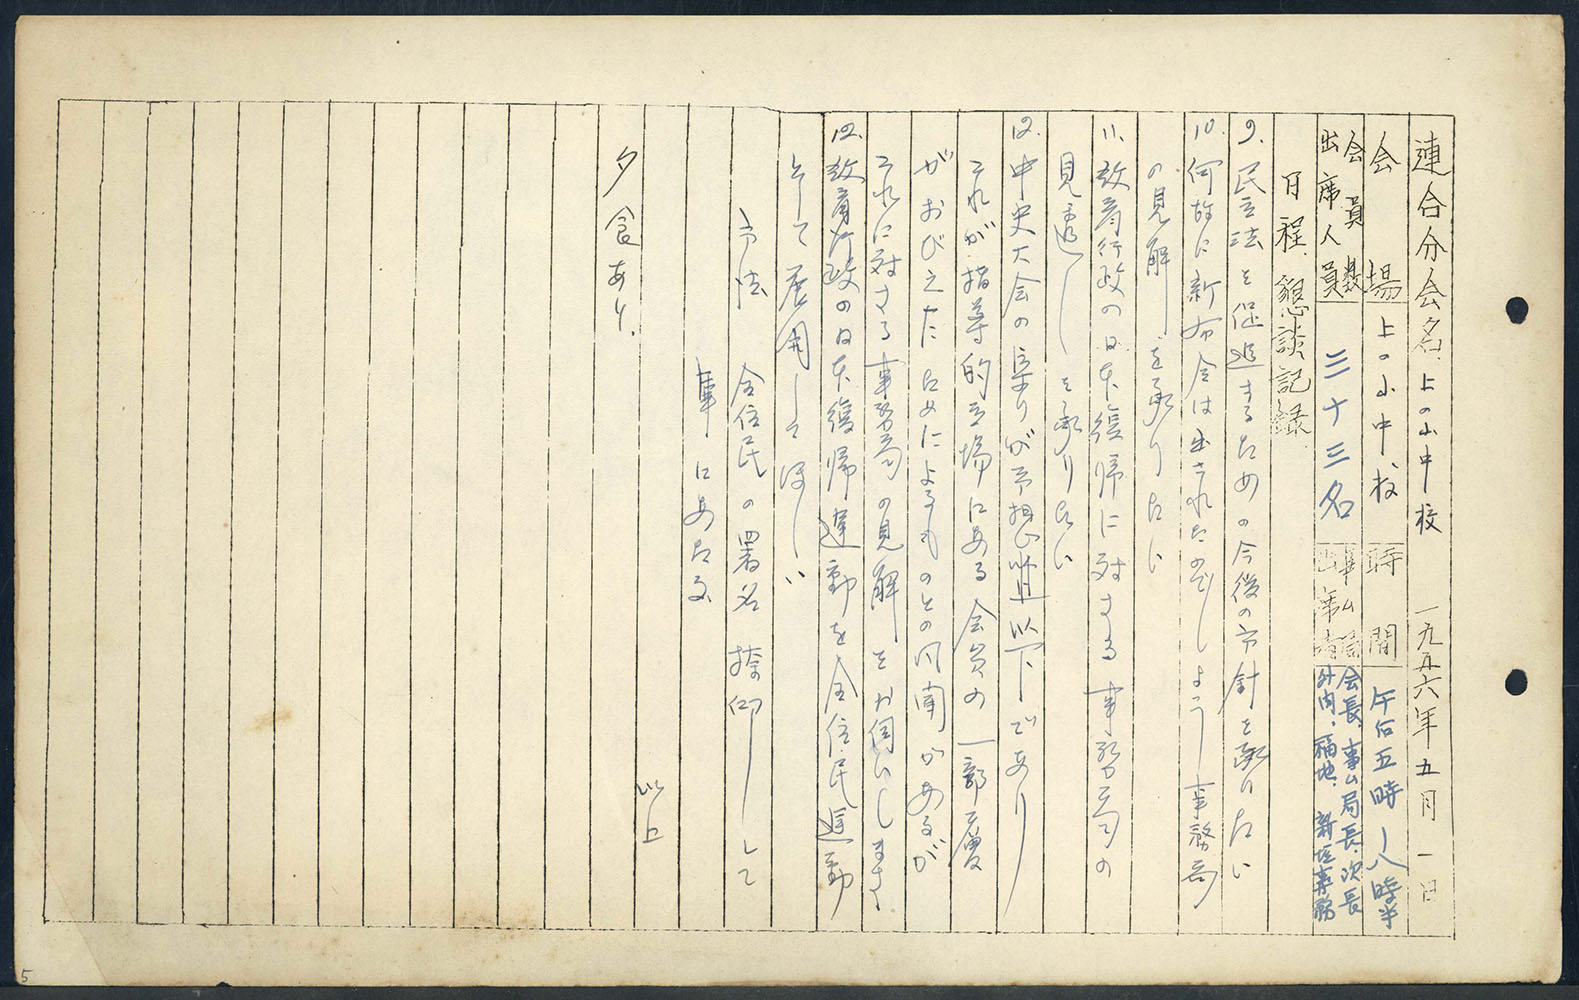 連合分会名、上の小中校 一九五六年五月一日
会場 上の小中校 時間 午后五時〜八時半
会員数
出席人員 三十三名 事ム局出席者 会長、事ム局長、次長
外内、福地、新垣事務
日程、懇談記録
9、民立法を促進するための今後の方針を承りたい
10、何故に新布令は出されたのでしょう事務局
の見解を承りたい
11、教育行政の日本復帰に対する事務局の
見透しを承りたい
12、中央大会の集りが予想以下であり
それが指導的立場にある会員の一部層
がおびえたためによるものとの問があるが
それに対する事務局の見解をお伺いします
12、教育行政の日本復帰運動を全住民運動
として展開してほしい
方法 全住民の署名捺印して
軍にあたる
以上
夕食あり、
5